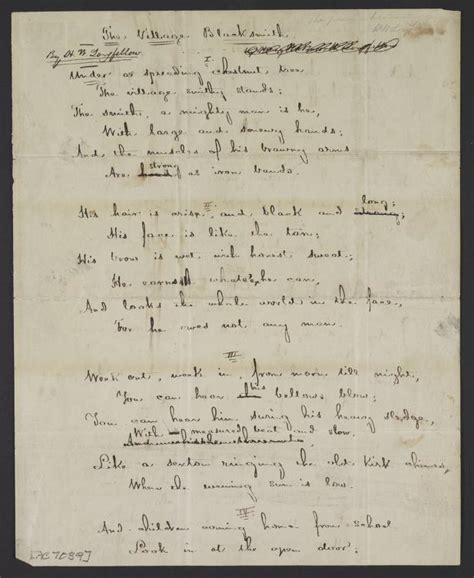 The Village Blacksmith.
By H. W. Longfellow.
I
Under a spreading chestnut tree
The village smithy stands;
The smith, a mighty man is he,
With large and sinewy hands;
And the muscles of his brawny arms
strong
Are hard as iron bands.
II
long;
His hair is crisp and black and
His face is like the tan;
His brow is wet with honest sweat;
He earns whate'er he can,
And looks the whole world in the face,
For he owes not any man.
III
Week out, week in, from morn till night,
his
You can hear bellows blow;
You can hear him, swing his heavy sledge,
With measured beat and slow,
Like a sexton ringing the old kirk chimes,
When the evening sun is low.
IV
And children coming home from school
Look in at the open door;
[AC7089]